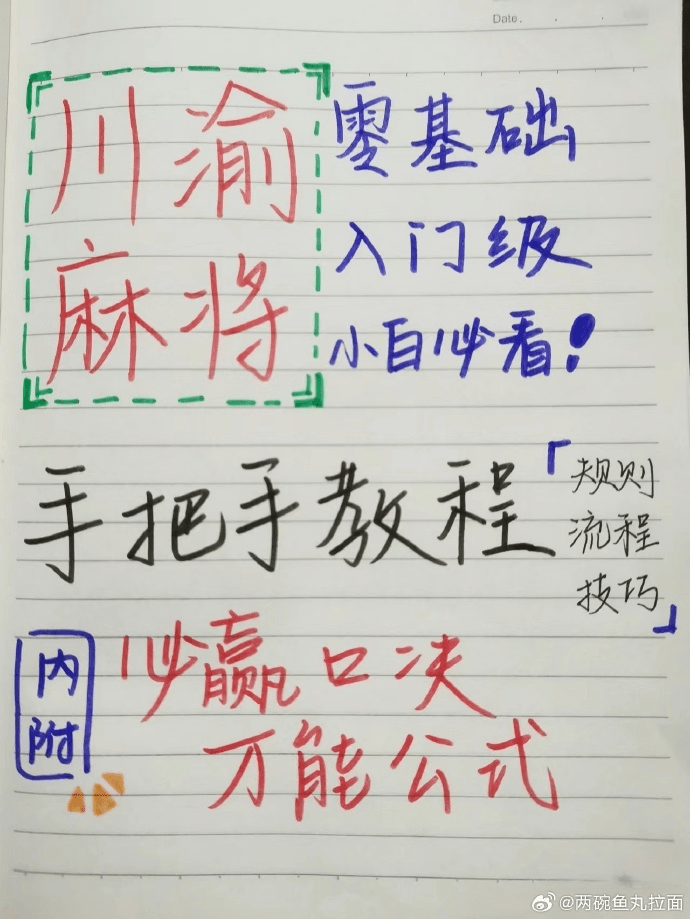 Date.
川渝
麻将
零基础
入门级
小白必看!
手把手教程
「规则
流程
技巧」
内附
必赢口决
万能公式
@两碗鱼丸拉面